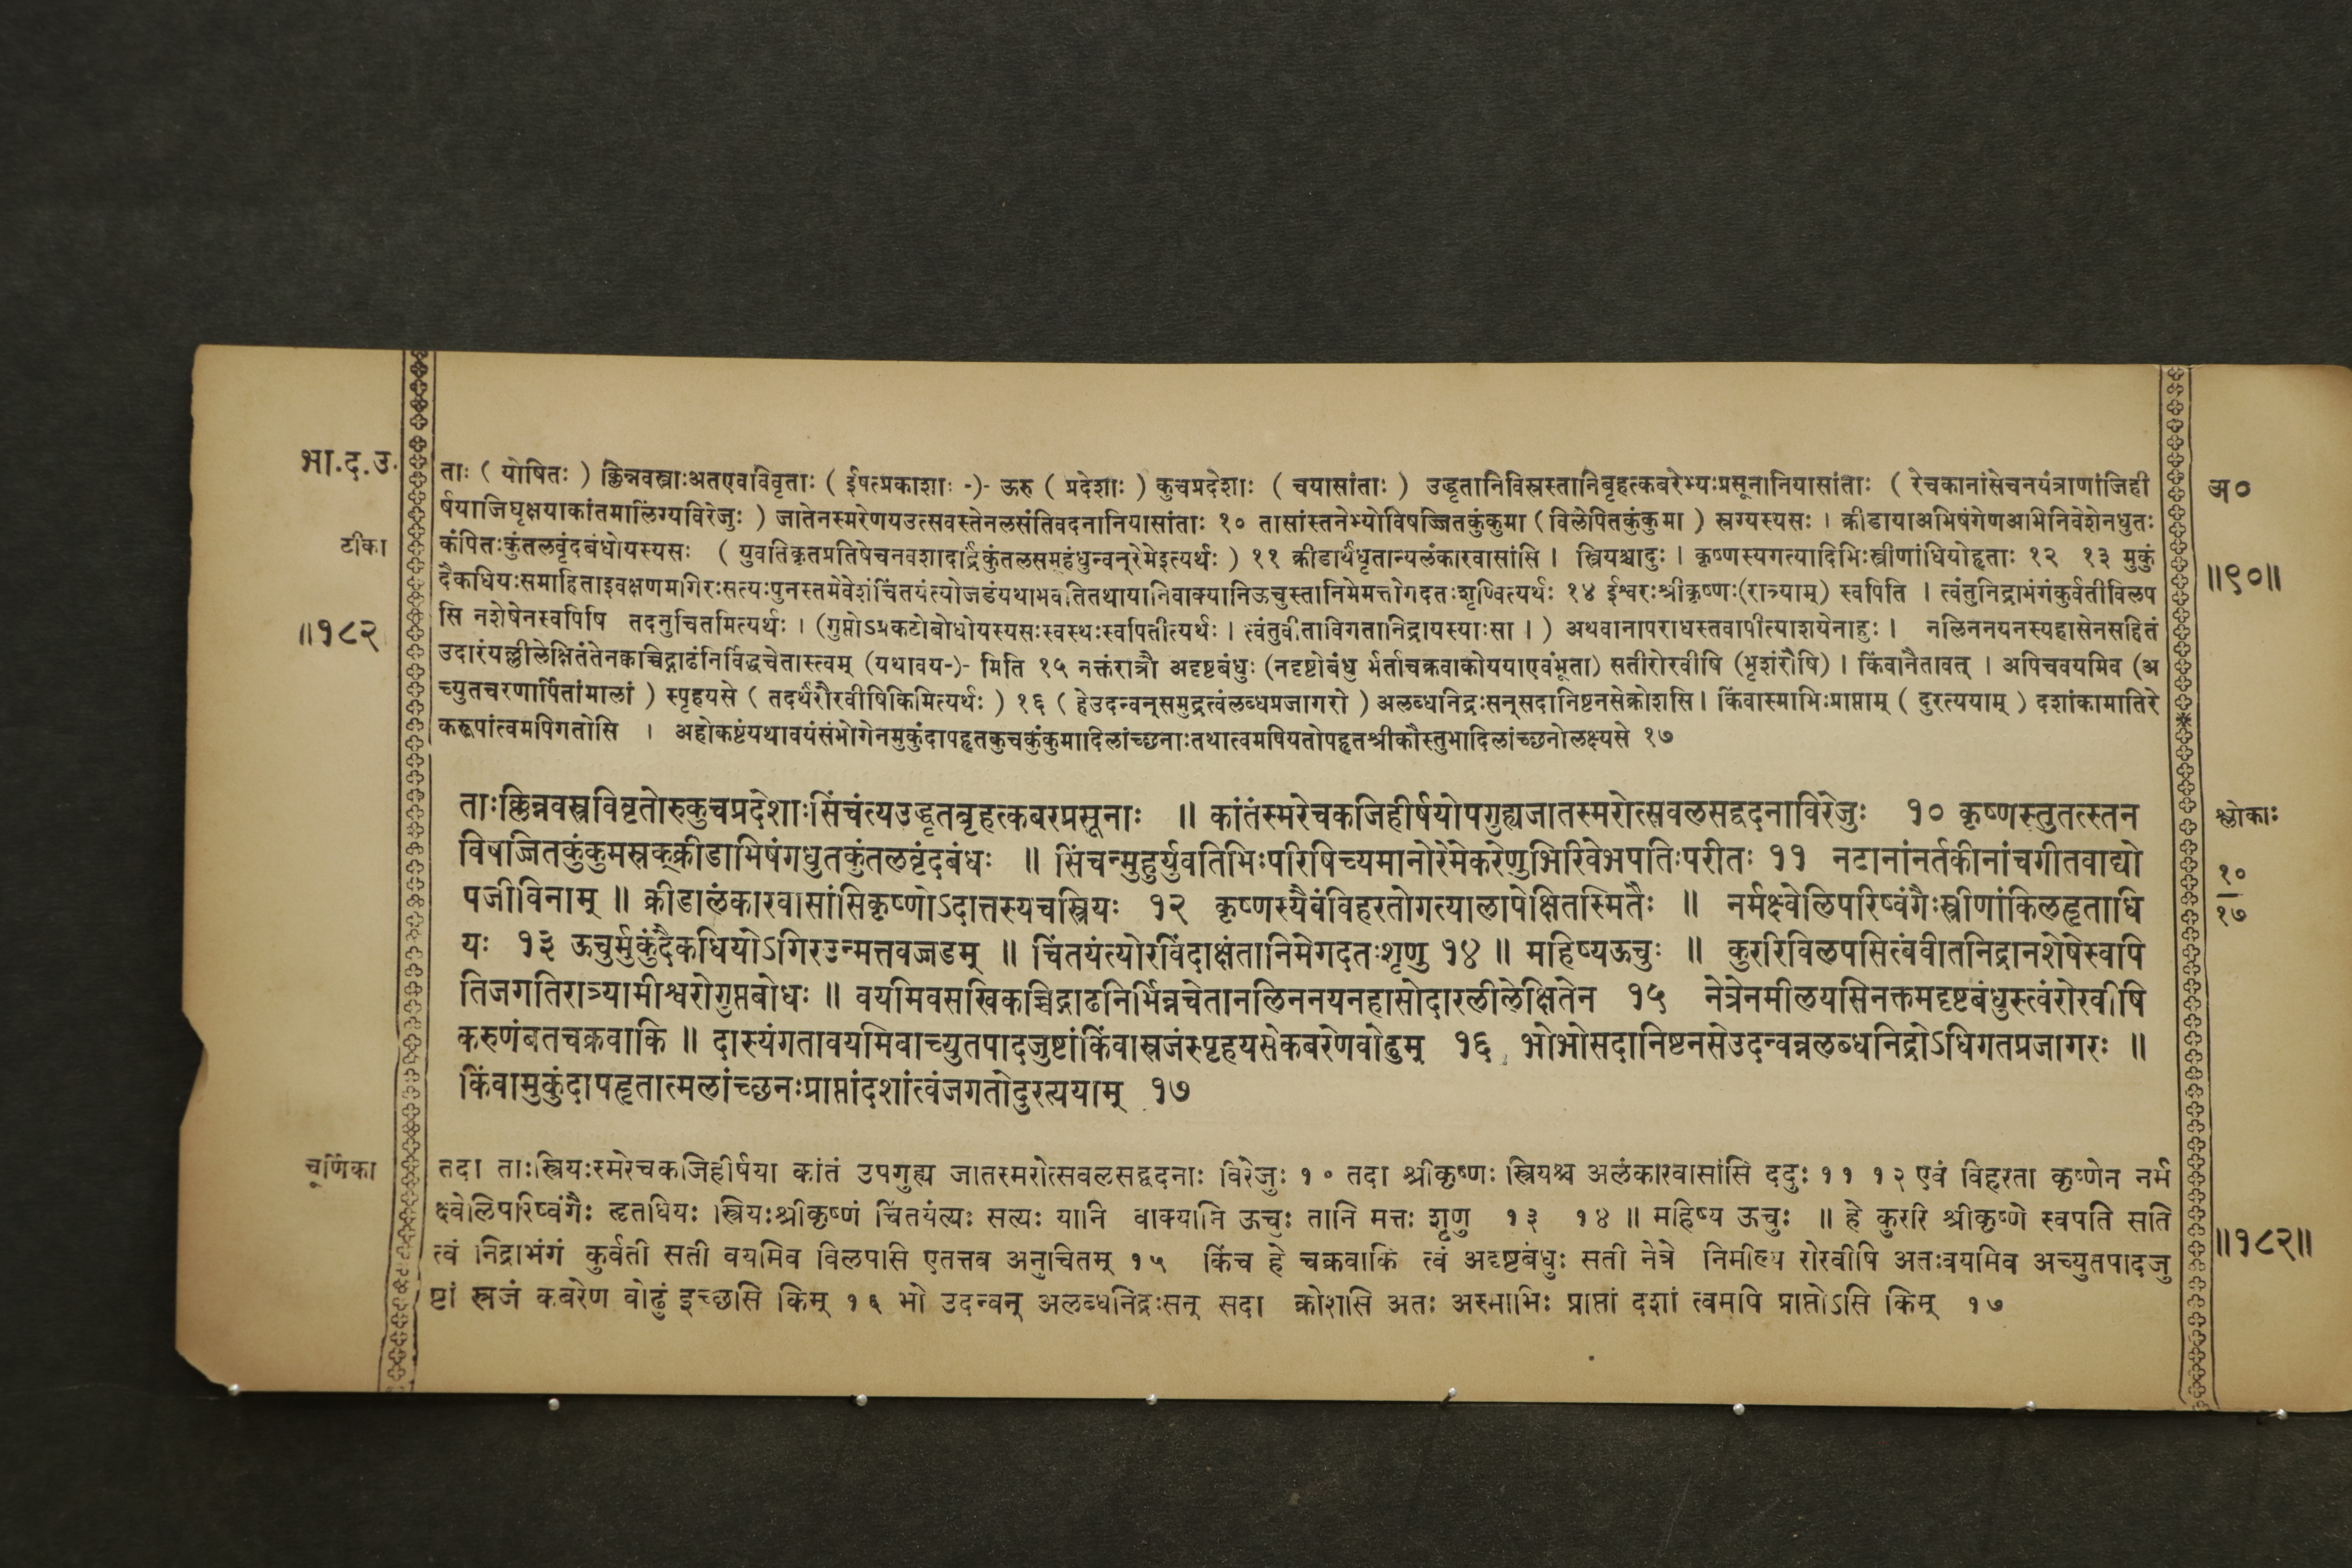 भा.द.उ.
ताः ( योषितः ) क्लिन्नवस्त्राःअतएवविवृताः ( ईषत्प्रकाशाः -)- ऊरु ( प्रदेशाः ) कुचप्रदेशाः ( चयासांताः ) उद्धृतानिविस्रस्तानिबृहत्कबरेभ्यःप्रसूनानियासांताः ( रेचकानांसेचनयंत्राणांजिही
र्षयाजिघृक्षयाकांतमालिंग्यविरेजुः ) जातेनस्मरेणयउत्सवस्तेनलसंतिवदनानियासांताः १० तासांस्तनेभ्योविषज्जितकुंकुमा ( विलेपितकुंकुमा ) स्रग्यस्यसः । क्रीडायाअभिषंगेणअभिनिवेशेनधुतः
टीका
कंपितःकुंतलवृंदबंधोयस्यसः ( युवतिकृतप्रतिषेचनवशादार्द्रकुंतलसमूहंधुन्वन्‌रेमेइत्यर्थः ) ११ क्रीडार्थंधृतान्यलंकारवासांसि । स्त्रियश्चादुः । कृष्णस्यगत्यादिभिःस्त्रीणांधियोहृताः १२ १३ मुकुं
दैकधियःसमाहिताइवक्षणमगिरःसत्यःपुनस्तमेवेशंचिंतयंत्योजडंयथाभवतितथायानिवाक्यानिऊचुस्तानिमेमत्तोगदतःशृण्वित्यर्थः १४ ईश्वरःश्रीकृष्णः(रात्र्याम्) स्वपिति । त्वंतुनिद्राभंगंकुर्वतीविलप
सि नशेषेनस्वपिषि तदनुचितमित्यर्थः । (गुप्तोऽप्रकटोबोधोयस्यसःस्वस्थःस्वपितीत्यर्थः । त्वंतुवीताविगतानिद्रायस्याःसा । ) अथवानापराधस्तवापीत्याशयेनाहुः । नलिननयनस्यहासेनसहितं
॥१८२
उदारंयल्लीलेक्षितंतेनकच्चिद्गाढंनिर्विद्धचेतास्त्वम् (यथावय-)- मिति १५ नक्तंरात्रौ अदृष्टबंधुः (नदृष्टोबंधु र्भर्ताचक्रवाकोययाएवंभूता) सतीरोरवीषि (भृशंरौषि) । किंवानैतावत् । अपिचवयमिव (अ
च्युतचरणार्पितांमालां ) स्पृहयसे ( तदर्थंरौरवीषिकिमित्यर्थः ) १६ ( हेउदन्वन्‌समुद्रत्वंलब्धप्रजागरो ) अलब्धनिद्रःसन्‌सदानिष्टनसेक्रोशसि। किंवास्माभिःप्राप्ताम् ( दुरत्ययाम् ) दशांकामातिरे
करूपांत्वमपिगतोसि । अहोकष्टंयथावयंसंभोगेनमुकुंदापहृतकुचकुंकुमादिलांच्छनाःतथात्वमपियतोपहृतश्रीकौस्तुभादिलांच्छनोलक्ष्यसे १७
ताःक्लिन्नवस्त्रविवृतोरुकुचप्रदेशाःसिंचंत्यउद्धृतबृहत्कबरप्रसूनाः ॥ कांतंस्मरेचकजिहीर्षयोपगुह्यजातस्मरोत्सवलसद्वदनाविरेजुः १० कृष्णस्तुतत्स्तन
विषज्जितकुंकुमस्रक्‌क्रीडाभिषंगधुतकुंतलवृंदबंधः ॥ सिंचन्मुहुर्युवतिभिःपरिषिच्यमानोरेमेकरेणुभिरिवेभपतिःपरीतः ११ नटानांनर्तकीनांचगीतवाद्यो
पजीविनाम् ॥ क्रीडालंकारवासांसिकृष्णोऽदात्तस्यचस्त्रियः १२ कृष्णस्यैवंविहरतोगत्यालापेक्षितस्मितैः ॥ नर्मक्ष्वेलिपरिष्वंगैःस्त्रीणांकिलहृताधि
यः १३ ऊचुर्मुकुंदैकधियोऽगिरउन्मत्तवज्जडम् ॥ चिंतयंत्योरविंदाक्षंतानिमेगदतःशृणु १४ ॥ महिष्यऊचुः ॥ कुररिविलपसित्वंवीतनिद्रानशेषेस्वपि
तिजगतिरात्र्यामीश्वरोगुप्तबोधः ॥ वयमिवसखिकच्चिद्गाढनिर्भिन्नचेतानलिननयनहासोदारलीलेक्षितेन १५ नेत्रेनमीलयसिनक्तमदृष्टबंधुस्त्वंरोरवीषि
करुणंबतचक्रवाकि ॥ दास्यंगतावयमिवाच्युतपादजुष्टांकिंवास्रजंस्पृहयसेकबरेणवोढुम् १६ भोभोसदानिष्टनसेउदन्वन्नलब्धनिद्रोऽधिगतप्रजागरः ॥
किंवामुकुंदापहृतात्मलांच्छनःप्राप्तांदशांत्वंजगतोदुरत्ययाम् १७
चूर्णिका
तदा ताःस्त्रियःस्मरेचकजिहीर्षया कांतं उपगुह्य जातस्मरोत्सवलसद्वदनाः विरेजुः १० तदा श्रीकृष्णः स्त्रियश्च अलंकारवासांसि ददुः ११ १२ एवं विहरता कृष्णेन नर्म
क्ष्वेलिपरिष्वंगैः हृतधियः स्त्रियःश्रीकृष्णं चिंतयंत्यः सत्यः यानि वाक्यानि ऊचुः तानि मत्तः शृणु १३ १४ ॥ महिष्य ऊचुः ॥ हे कुररि श्रीकृष्णे स्वपति सति
त्वं निद्राभंगं कुर्वती सती वयमिव विलपसि एतत्तव अनुचितम् १५ किंच हे चक्रवाकि त्वं अदृष्टबंधुः सती नेत्रे निमील्य रोरवीषि अतःवयमिव अच्युतपादजु
ष्टां स्रजं कबरेण वोढुं इच्छसि किम् १६ भो उदन्वन् अलब्धनिद्रःसन् सदा क्रोशसि अतः अस्माभिः प्राप्तां दशां त्वमपि प्राप्तोऽसि किम् १७
अ०
॥९०॥
श्लोकाः
१०
१७
॥१८२॥